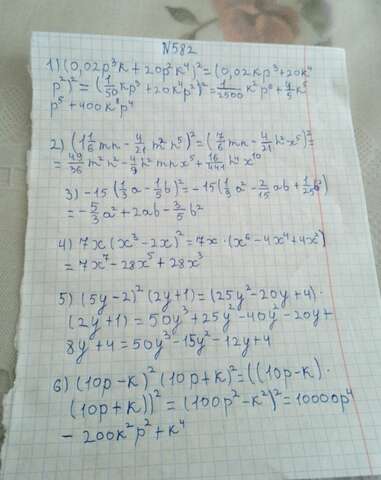 N582
1) (0,02p³k + 20p²k⁴)² = (0,02kp³ + 20k⁴
p²)² = (1/50 kp³ + 20k⁴p²)² = 1/2500 k²p⁶ + 4/5 k⁵
p⁵ + 400k⁸p⁴
2) (1 1/6 mn - 4/21 m² n⁵)² = (7/6 mn - 4/21 n² x⁵)² =
= 49/36 m² n² - 4/9 n² mn x⁵ + 16/441 n⁴ x¹⁰
3) -15 (1/3 a - 1/5 b)² = -15 (1/3 a² - 2/15 ab + 1/25 b²)
= -5/3 a² + 2ab - 3/5 b²
4) 7x (x³ - 2x)² = 7x · (x⁶ - 4x⁴ + 4x²)
= 7x⁷ - 28x⁵ + 28x³
5) (5y - 2)² (2y + 1) = (25y² - 20y + 4) ·
· (2y + 1) = 50y³ + 25y² - 40y² - 20y +
8y + 4 = 50y³ - 15y² - 12y + 4
6) (10p - k)² (10p + k)² = ((10p - k) ·
· (10p + k))² = (100p² - k²)² = 10000p⁴
- 200k²p² + k⁴